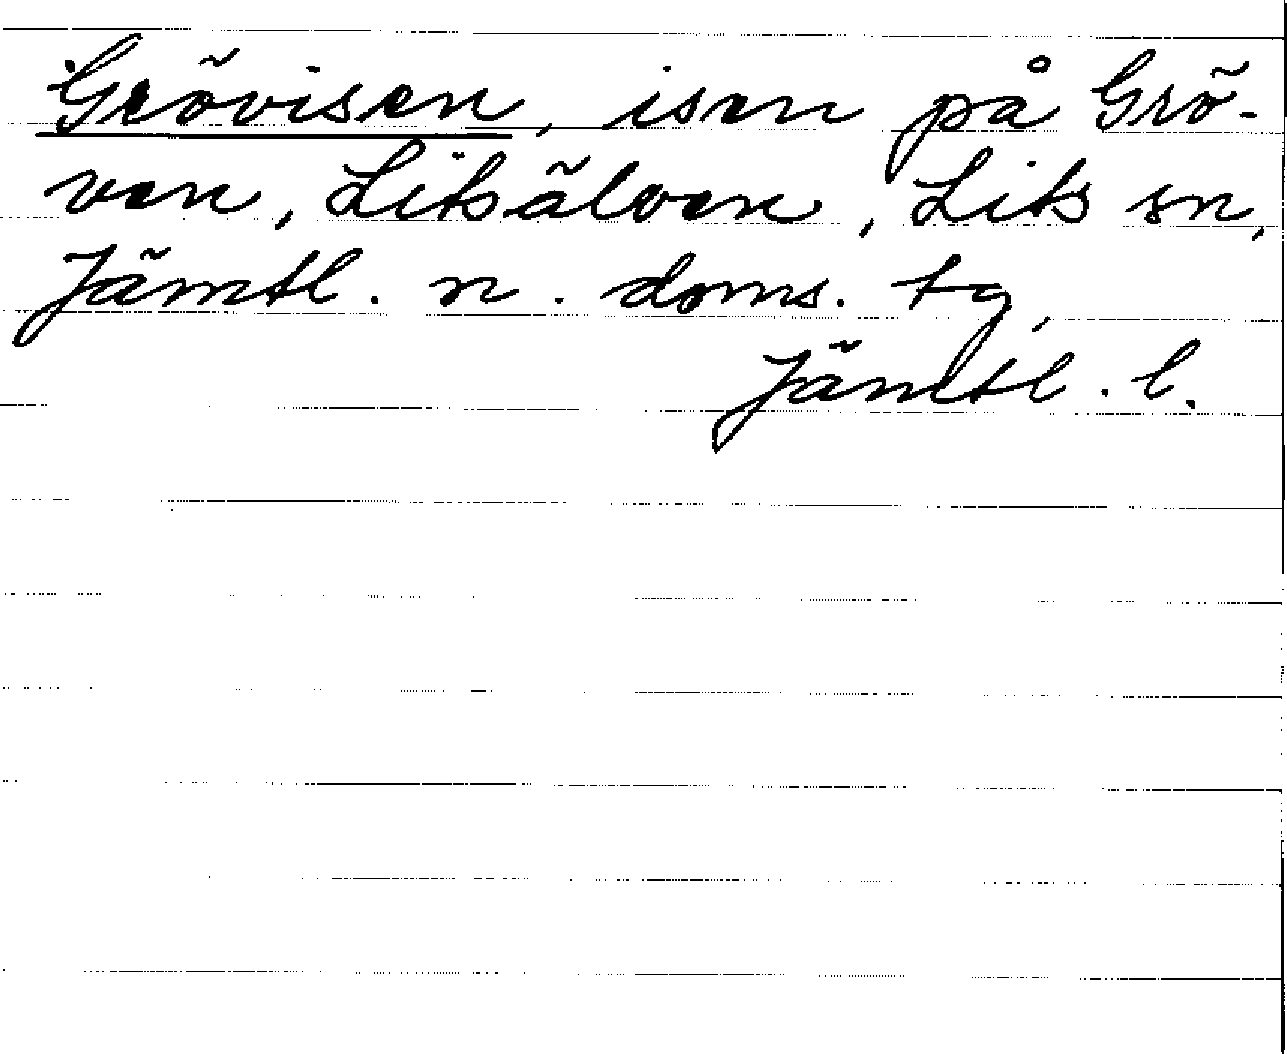 Grövisen, isen på Grö-
ven, Litsälven, Lits sn,
Jämtl. n. doms. tg,
Jämtl. l.